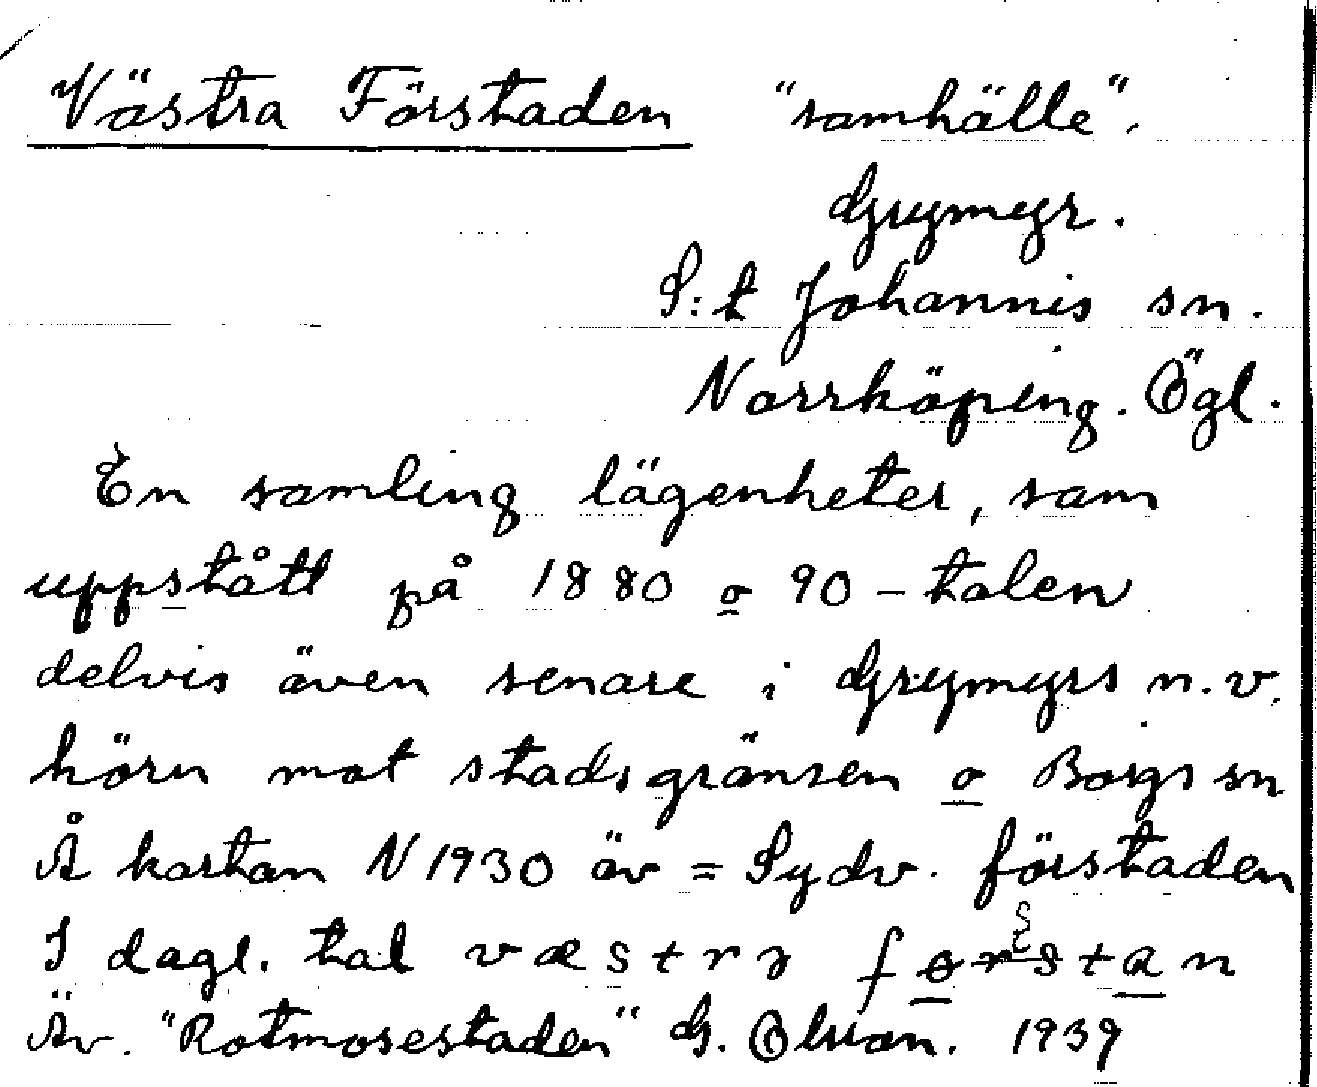 Västra Förstaden "samhälle".
Grymyr.
S:t Johannis sn.
Norrköping. Ögl.
En samling lägenheter, som
uppstått på 1880 o 90-talen
delvis även senare i Grymyrs n.v.
hörn mot stadsgränsen o Borgs sn
Å kartan N 1930 äv = Sydv. förstaden
I dagl. tal væstrə
Äv. "Rotmosestaden" G. Olsson. 1939